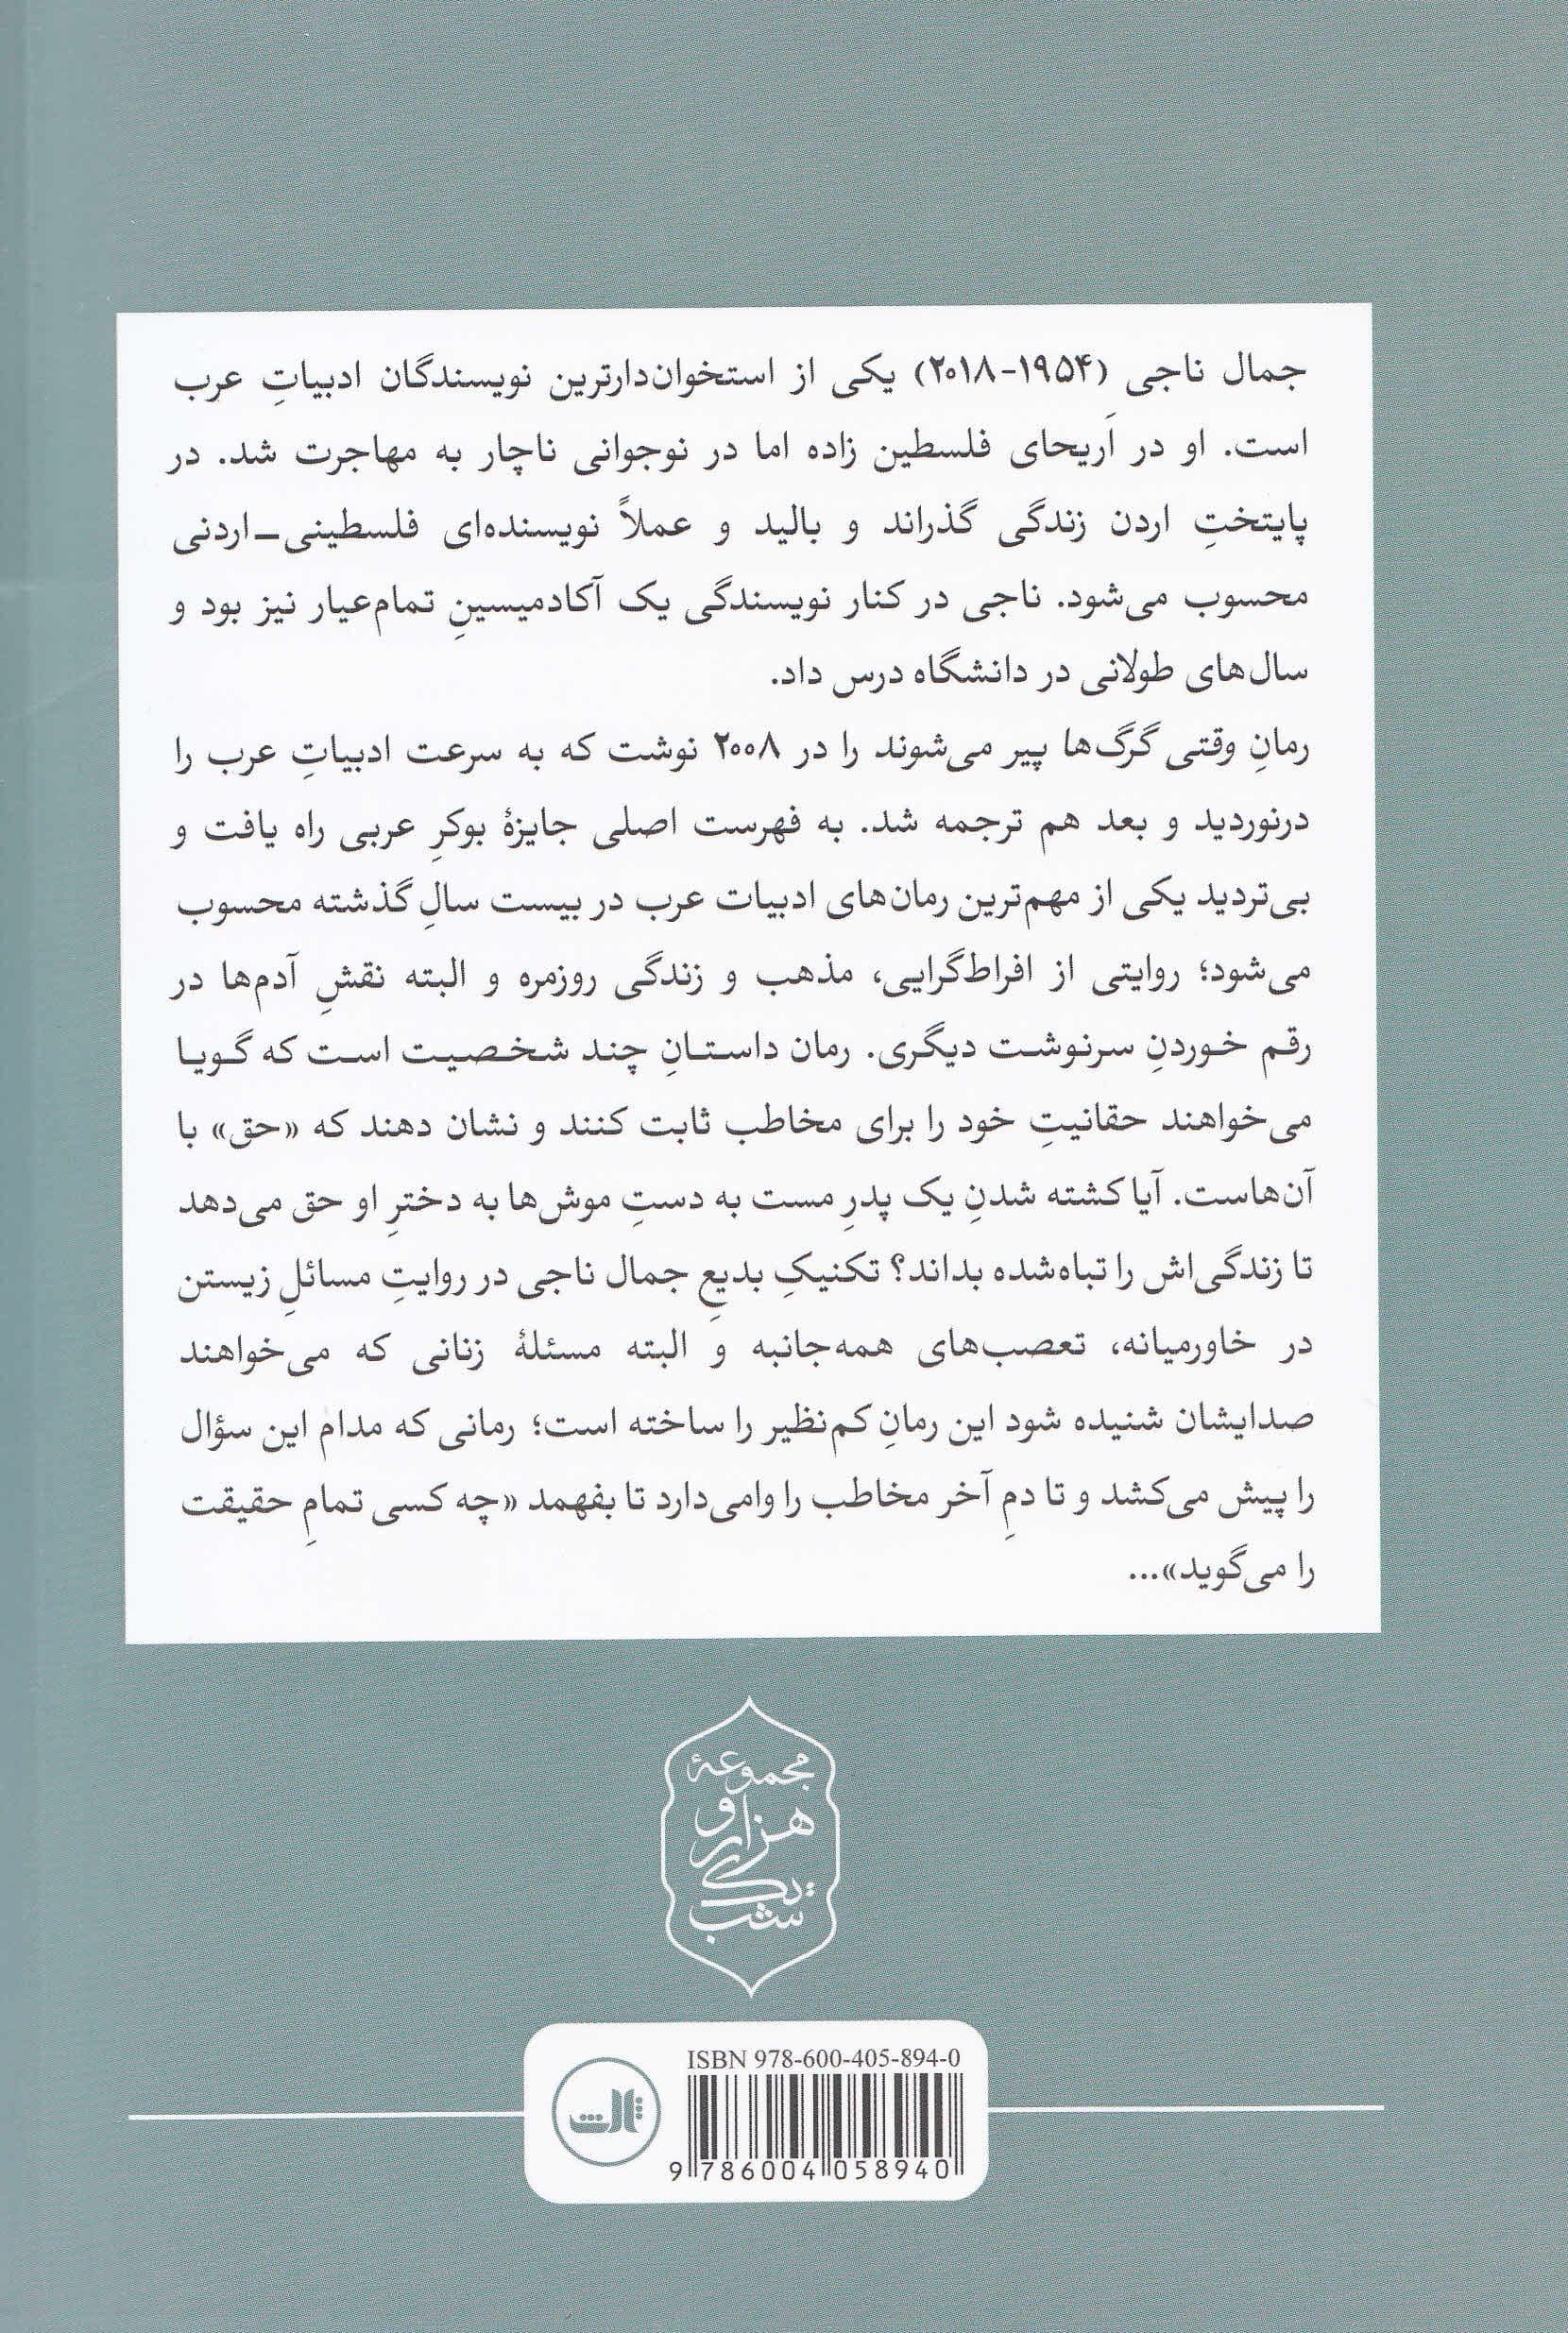 جمال ناجی (۱۹۵۴-۲۰۱۸) یکی از استخوان‌دارترین نویسندگان ادبیاتِ عرب
است. او در اَریحای فلسطین زاده اما در نوجوانی ناچار به مهاجرت شد. در
پایتختِ اردن زندگی گذراند و بالید و عملاً نویسنده‌ای فلسطینی_اردنی
محسوب می‌شود. ناجی در کنار نویسندگی یک آکادمیسینِ تمام‌عیار نیز بود و
سال‌های طولانی در دانشگاه درس داد.
رمانِ وقتی گرگ‌ها پیر می‌شوند را در ۲۰۰۸ نوشت که به سرعت ادبیاتِ عرب را
درنوردید و بعد هم ترجمه شد. به فهرست اصلی جایزهٔ بوکرِ عربی راه یافت و
بی‌تردید یکی از مهم‌ترین رمان‌های ادبیات عرب در بیست سالِ گذشته محسوب
می‌شود؛ روایتی از افراط‌گرایی، مذهب و زندگی روزمره و البته نقشِ آدم‌ها در
رقم خوردنِ سرنوشت دیگری. رمان داستانِ چند شخصیت است که گویا
می‌خواهند حقانیتِ خود را برای مخاطب ثابت کنند و نشان دهند که «حق» با
آن‌هاست. آیا کشته شدنِ یک پدرِ مست به دستِ موش‌ها به دخترِ او حق می‌دهد
تا زندگی‌اش را تباه‌شده بداند؟ تکنیکِ بدیعِ جمال ناجی در روایتِ مسائلِ زیستن
در خاورمیانه، تعصب‌های همه‌جانبه و البته مسئلهٔ زنانی که می‌خواهند
صدایشان شنیده شود این رمانِ کم‌نظیر را ساخته است؛ رمانی که مدام این سؤال
را پیش می‌کشد و تا دمِ آخر مخاطب را وامی‌دارد تا بفهمد «چه کسی تمامِ حقیقت
را می‌گوید»...
مجموعهٔ
هزار و
یک
شب
ISBN 978-600-405-894-0
ثالث
9 786004 058940